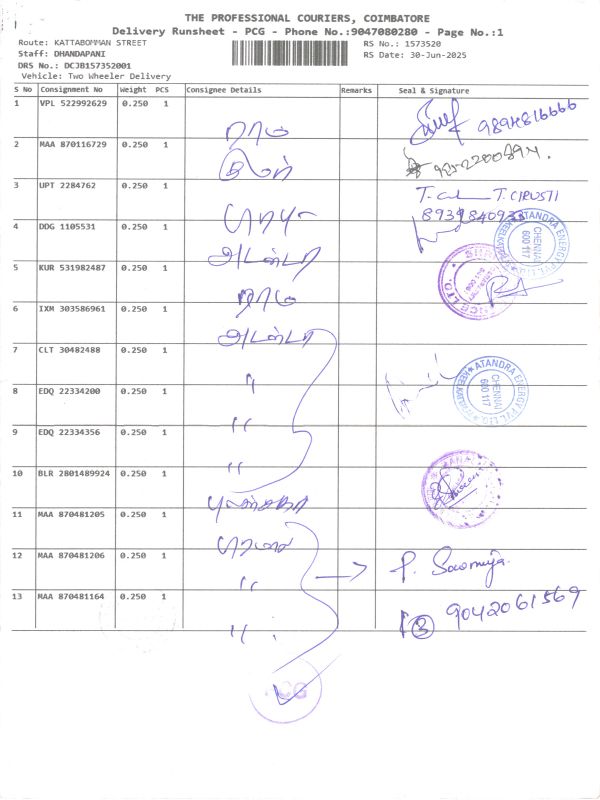 THE PROFESSIONAL COURIERS, COIMBATORE
Delivery Runsheet - PCG - Phone No.:9047080280 - Page No.:1
Route: KATTABOMMAN STREET
RS No.: 1573520
Staff: DHANDAPANI
RS Date: 30-Jun-2025
DRS No.: DCJB157352001
Vehicle: Two Wheeler Delivery
S No Consignment No Weight PCS Consignee Details Remarks Seal & Signature
1 VPL 522992629 0.250 1 ராம் 9894816666
2 MAA 870116729 0.250 1
3 UPT 2284762 0.250 1 T. CIRUSTI
8939840933
4 DDG 1105531 0.250 1
ATANDRA ENERGY PVT. LTD. CHENNAI 600 117
5 KUR 531982487 0.250 1 ராம்
6 IXM 303586961 0.250 1
7 CLT 30482488 0.250 1 "
ATANDRA ENERGY PVT. LTD. CHENNAI 600 117
8 EDQ 22334200 0.250 1 "
9 EDQ 22334356 0.250 1 "
10 BLR 2801489924 0.250 1
11 MAA 870481205 0.250 1
12 MAA 870481206 0.250 1 " P. Sowmiya
13 MAA 870481164 0.250 1 " 3 9042061569
PCG